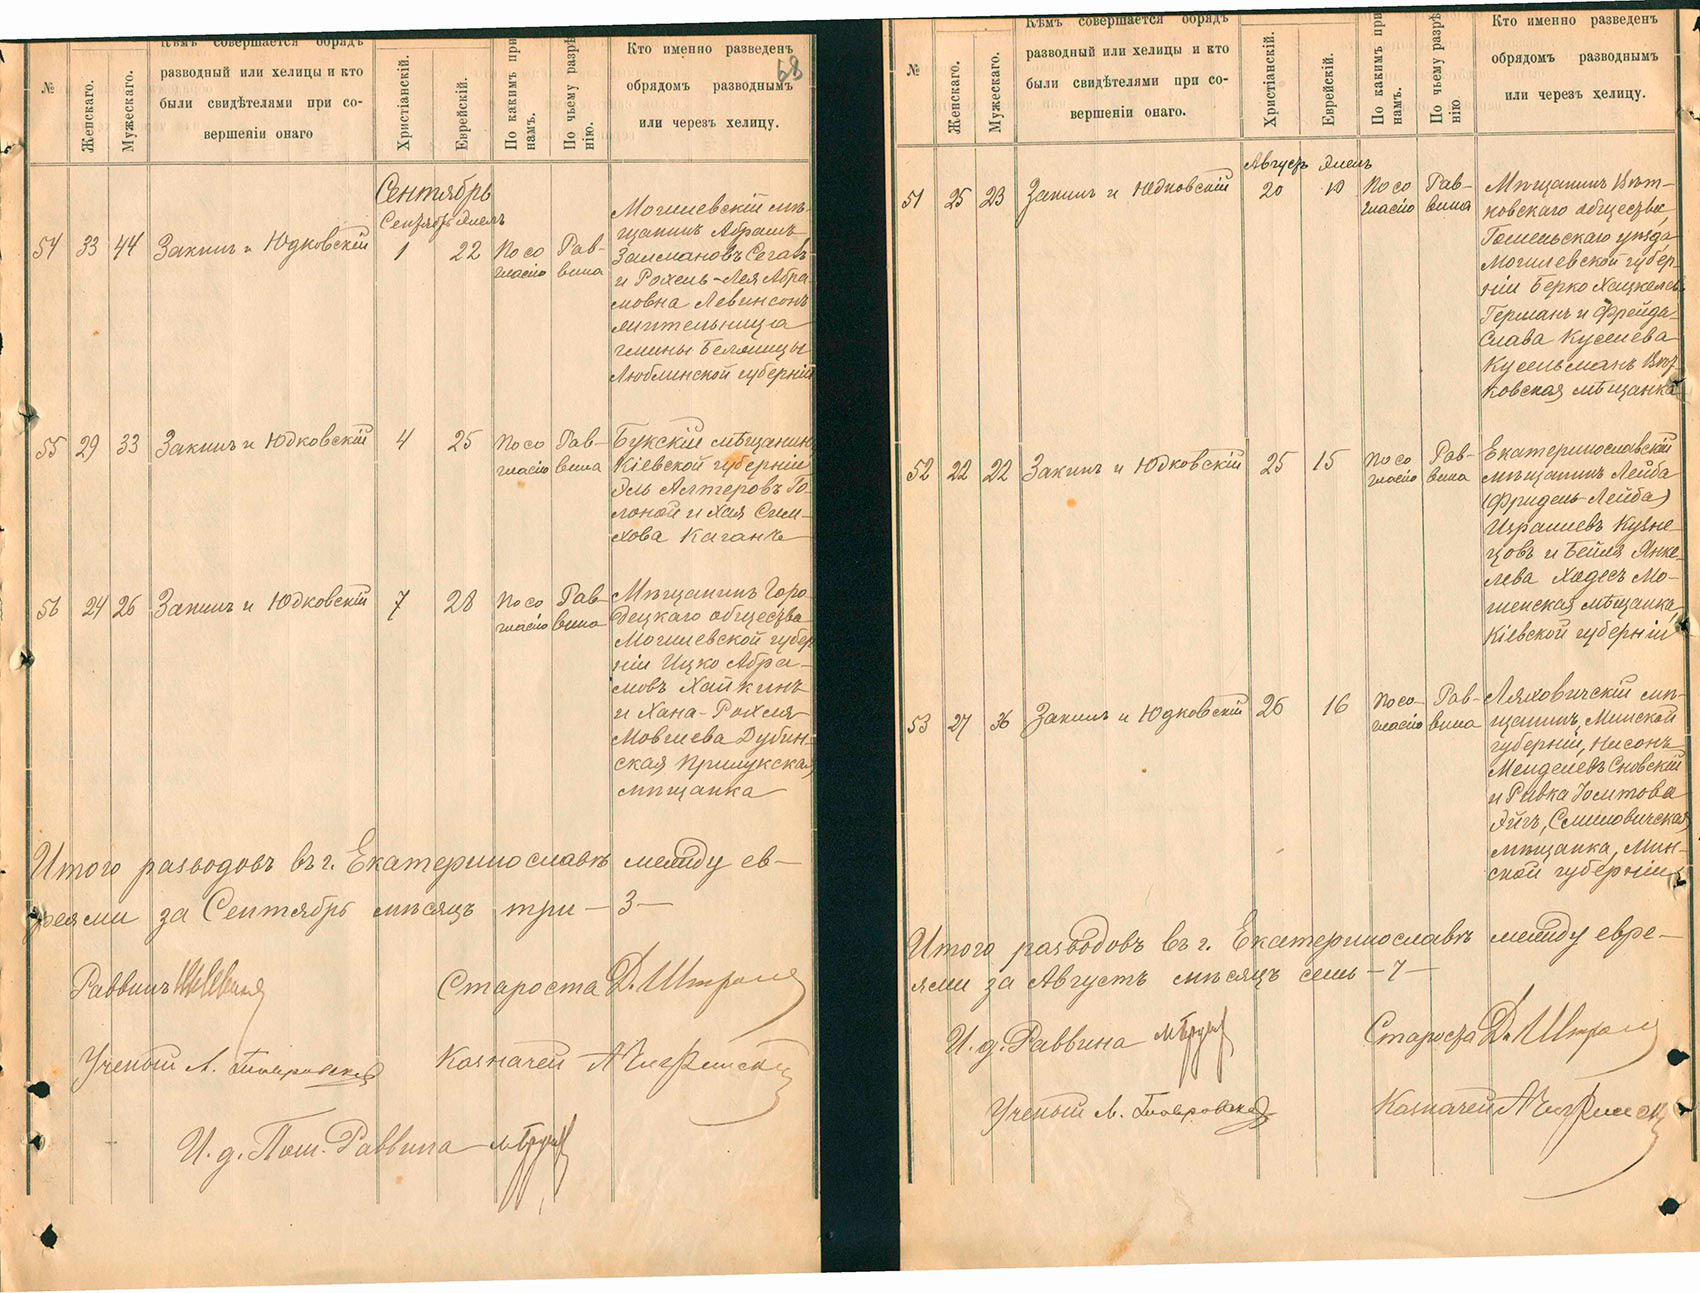 №
Женскаго.
Мужескаго.
Кѣмъ совершается обрядъ
разводный или хелицы и кто
были свидѣтелями при со-
вершеніи онаго
Христіанскій.
Еврейскій.
По какимъ при
намъ.
По чьему разрѣ
нію.
Кто именно разведенъ
обрядомъ разводнымъ
или черезъ хелицу.
68
Сентябрь
54 33 44 Закинъ и Юдковскій 1 22 По со Рав-
гласію вина
Могилевскій мѣ-
щанинъ Абрамъ
Залмановъ Сегалъ
и Рохель-Лея Абра
мовна Левинсонъ
жительница
гмины Белжицы
Люблинской губерніи
55 29 33 Закинъ и Юдковскій 4 25 По со Рав-
гласію вина
Букскій мѣщанинъ
Кіевской губерніи
Эль Алтеровъ Го-
лоной и Хая Сим-
хова Каганъ
56 24 26 Закинъ и Юдковскій 7 28 По со Рав
гласію вина
Мѣщанинъ Горо
децкаго общества
Могилевской губер
ніи Ицко Абра-
мовъ Хайкинъ
и Хана-Рохля
Мовшева Дубин-
ская Прилукская
мѣщанка
Итого разводовъ въ г. Екатеринославѣ между ев-
реями за Сентябрь мѣсяцъ три - 3 -
Раввинъ
Староста
Ученый
Казначей
И. д. Пом. Раввина
№
Женскаго.
Мужескаго.
Кѣмъ совершается обрядъ
разводный или хелицы и кто
были свидѣтелями при со-
вершеніи онаго.
Христіанскій.
Еврейскій.
По какимъ при
намъ.
По чьему разрѣ
нію.
Кто именно разведенъ
обрядомъ разводнымъ
или черезъ хелицу.
51 25 23 Закинъ и Юдковскій 20 10 По со Рав-
гласію вина
Мѣщанинъ Вѣт-
ковскаго общества,
Гомельскаго уѣзда,
Могилевской губер-
ніи Берко Хацкелевъ
Германъ и Фрейда-
Слава Куселева
Кусельманъ Вѣт
ковская мѣщанка
52 22 22 Закинъ и Юдковскій 25 15 По со Рав-
гласію вина
Екатеринославскій
мѣщанинъ Лейба
(Фридель-Лейба)
Израилевъ Кузне-
цовъ и Бейля Янке-
лева Ходесъ Мо-
шенская мѣщанка,
Кіевской губерніи
53 27 36 Закинъ и Юдковскій 26 16 По со- Рав-
гласію вина
Ляховичскій мѣ-
щанинъ, Минской
губерніи, Нисонъ
Менделевъ Сновскій
и Ривка Іомтова
Эйгъ, Смиловичская
мѣщанка, Мин-
ской губерніи
Итого разводовъ въ г. Екатеринославѣ между евре-
ями за Августъ мѣсяцъ семь - 7 -
И. д. Раввина
Староста
Ученый
Казначей